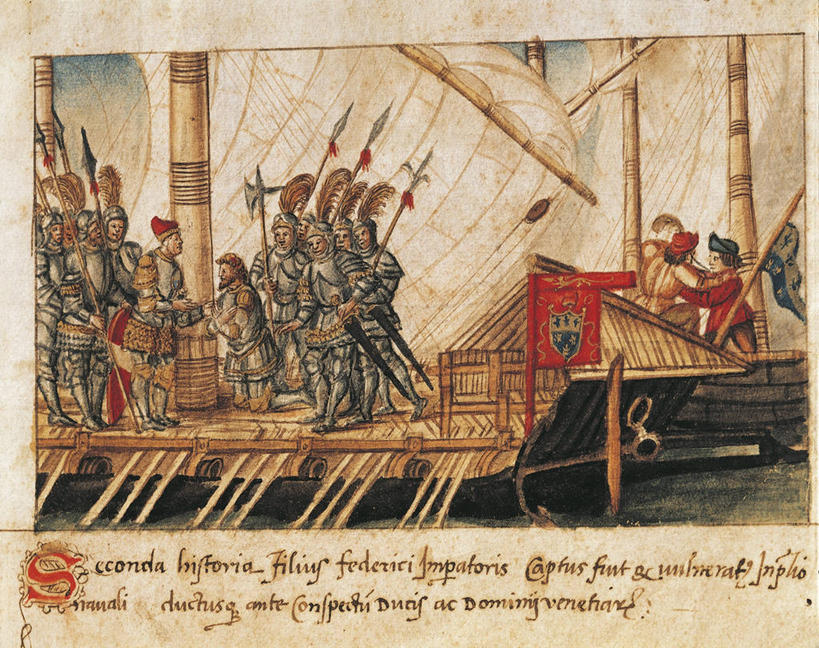 Seconda historia Filius federici Imperatoris Captus fuit & vulneratꝫ In prelio
navali ductusqꝫ ante Conspectū Ducis ac Dominij venetiarꝝ: